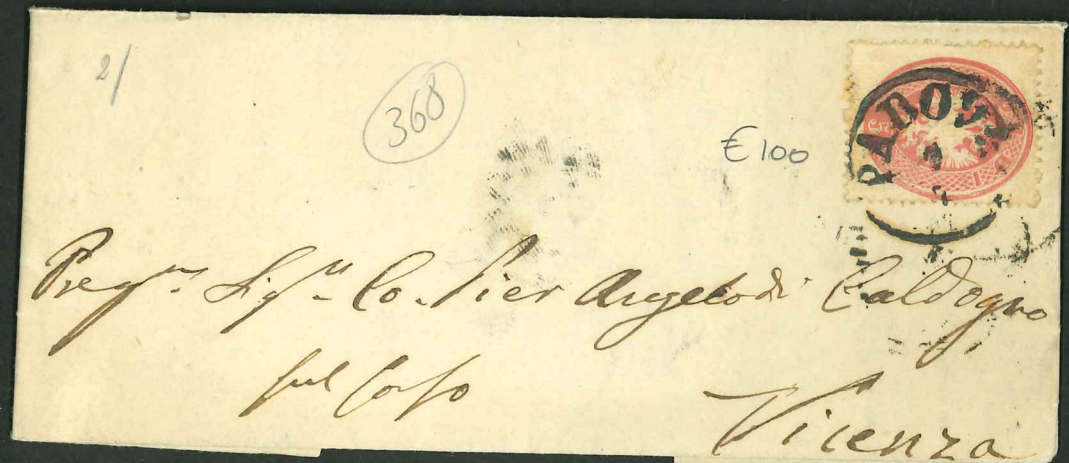 2/
368
€100
PADOVA
Preg.m Sig.r Co. Pier Angelo di Caldogno
sul Corso
Vicenza